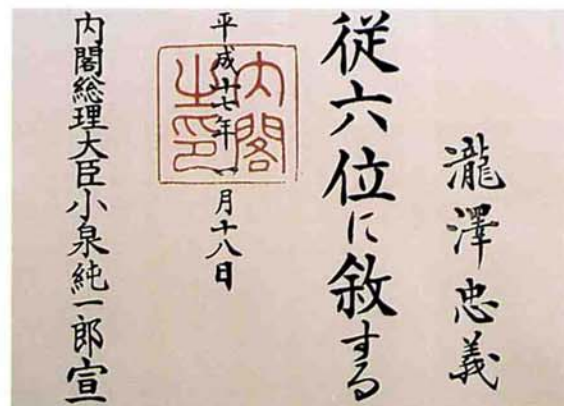 瀧澤忠義
従六位に敘する
平成十七年八月十八日
内閣之印
内閣総理大臣小泉純一郎宣